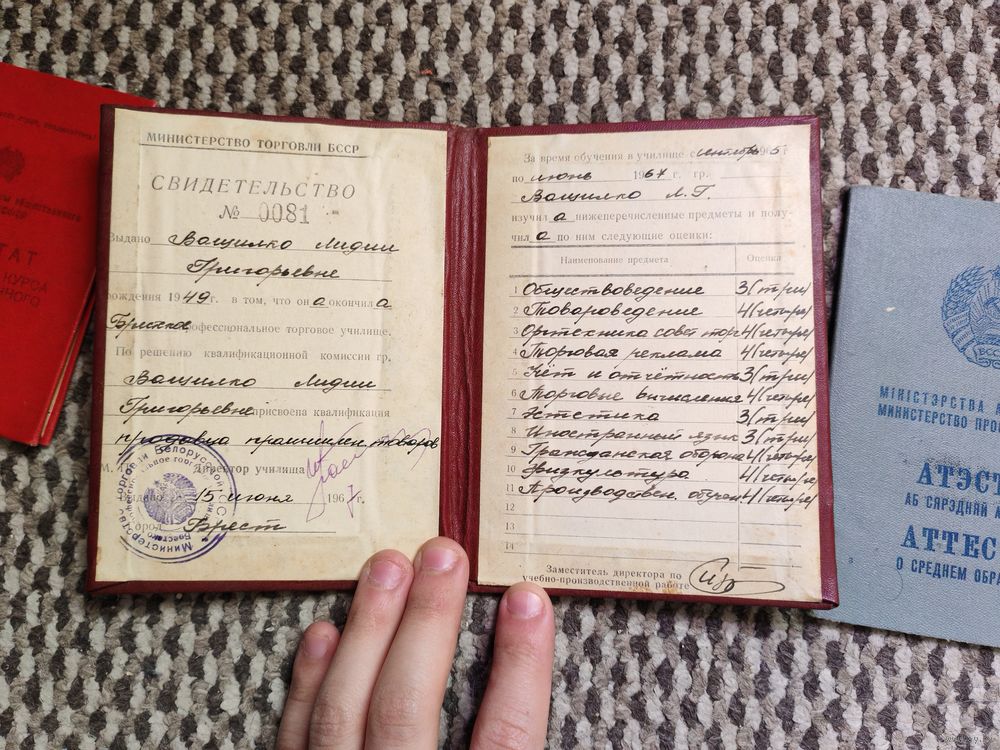 МИНИСТЕРСТВО ТОРГОВЛИ БССР
СВИДЕТЕЛЬСТВО
№ 0081
Выдано Ващилко Лидии
Григорьевне
рождения 1949г. в том, что он а окончил а
Брестское профессиональное торговое училище.
По решению квалификационной комиссии гр.
Ващилко Лидии
Григорьевне присвоена квалификация
продавца промышлен. товаров
М. П. Директор училища
Выдано 15 июня 1967г.
город Брест
За время обучения в училище с сентябрь 1965 г
по июнь 1967 г. гр.
Ващилко Л. Г.
изучил а нижеперечисленные предметы и полу-
чил а по ним следующие оценки:
Наименование предмета Оценка
1 Обществоведение 3(три)
2 Товароведение 4(четыре)
3 Оргтехника совет торг 4(четыре)
4 Торговая реклама 4(четыре)
5 Учёт и отчётность 3(три)
6 Торговые вычисления 4(четыре)
7 Эстетика 3(три)
8 Иностранный язык 3(три)
9 Гражданская оборона 4(четыре)
10 Физкультура 4(четыре)
11 Производствен. обучен 4(четыре)
12
13
14
Заместитель директора по
учебно-производственной работе
ТАТ
КУРСА
ННОГО
БССР
МІНІСТЭРСТВА
МИНИСТЕРСТВО ПРО
АТЭСТ
АБ СЯРЭДНЯЙ А
АТТЕС
О СРЕДНЕМ ОБРА